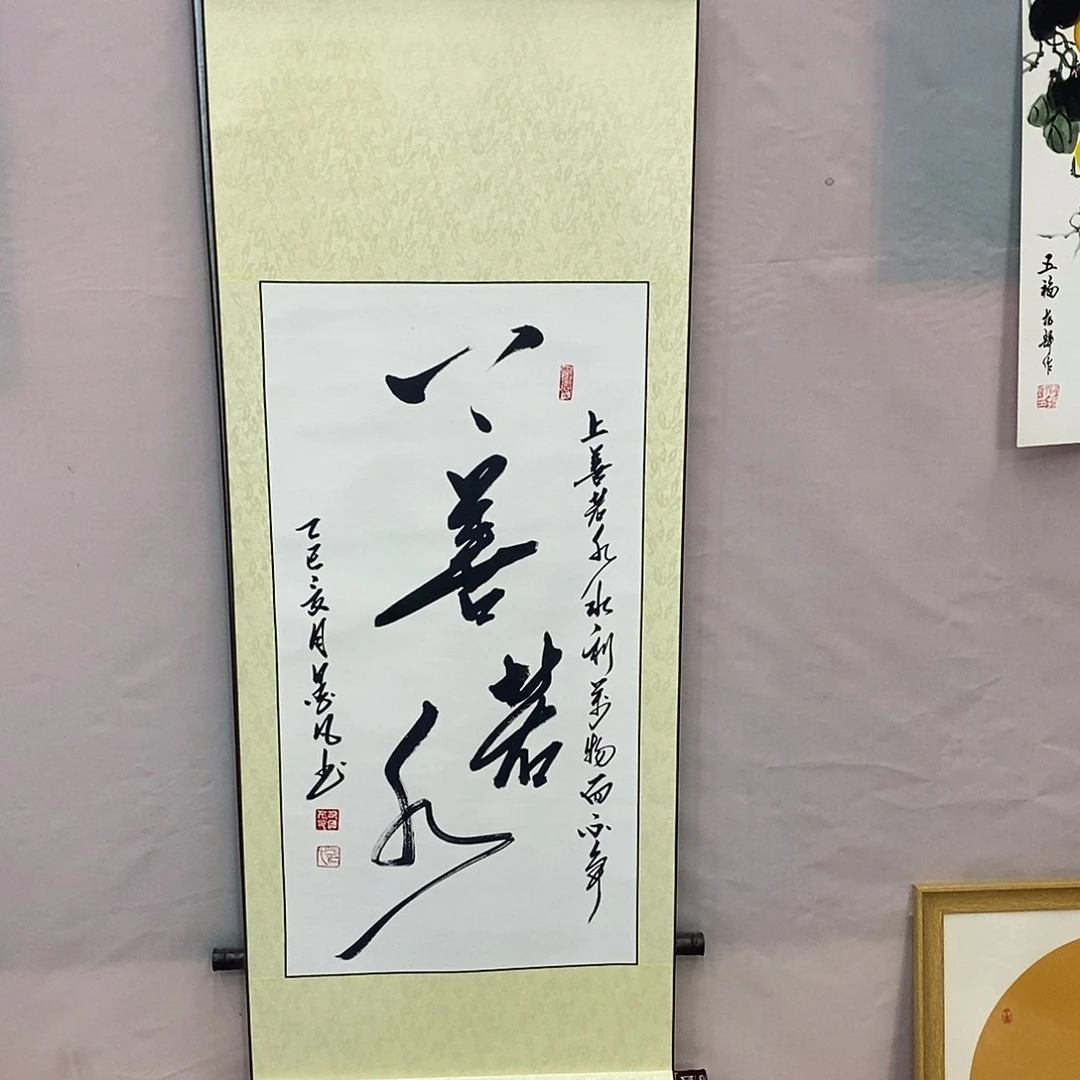 上善若水水利万物而不争
上善若水
乙巳亥月墨风书
五福